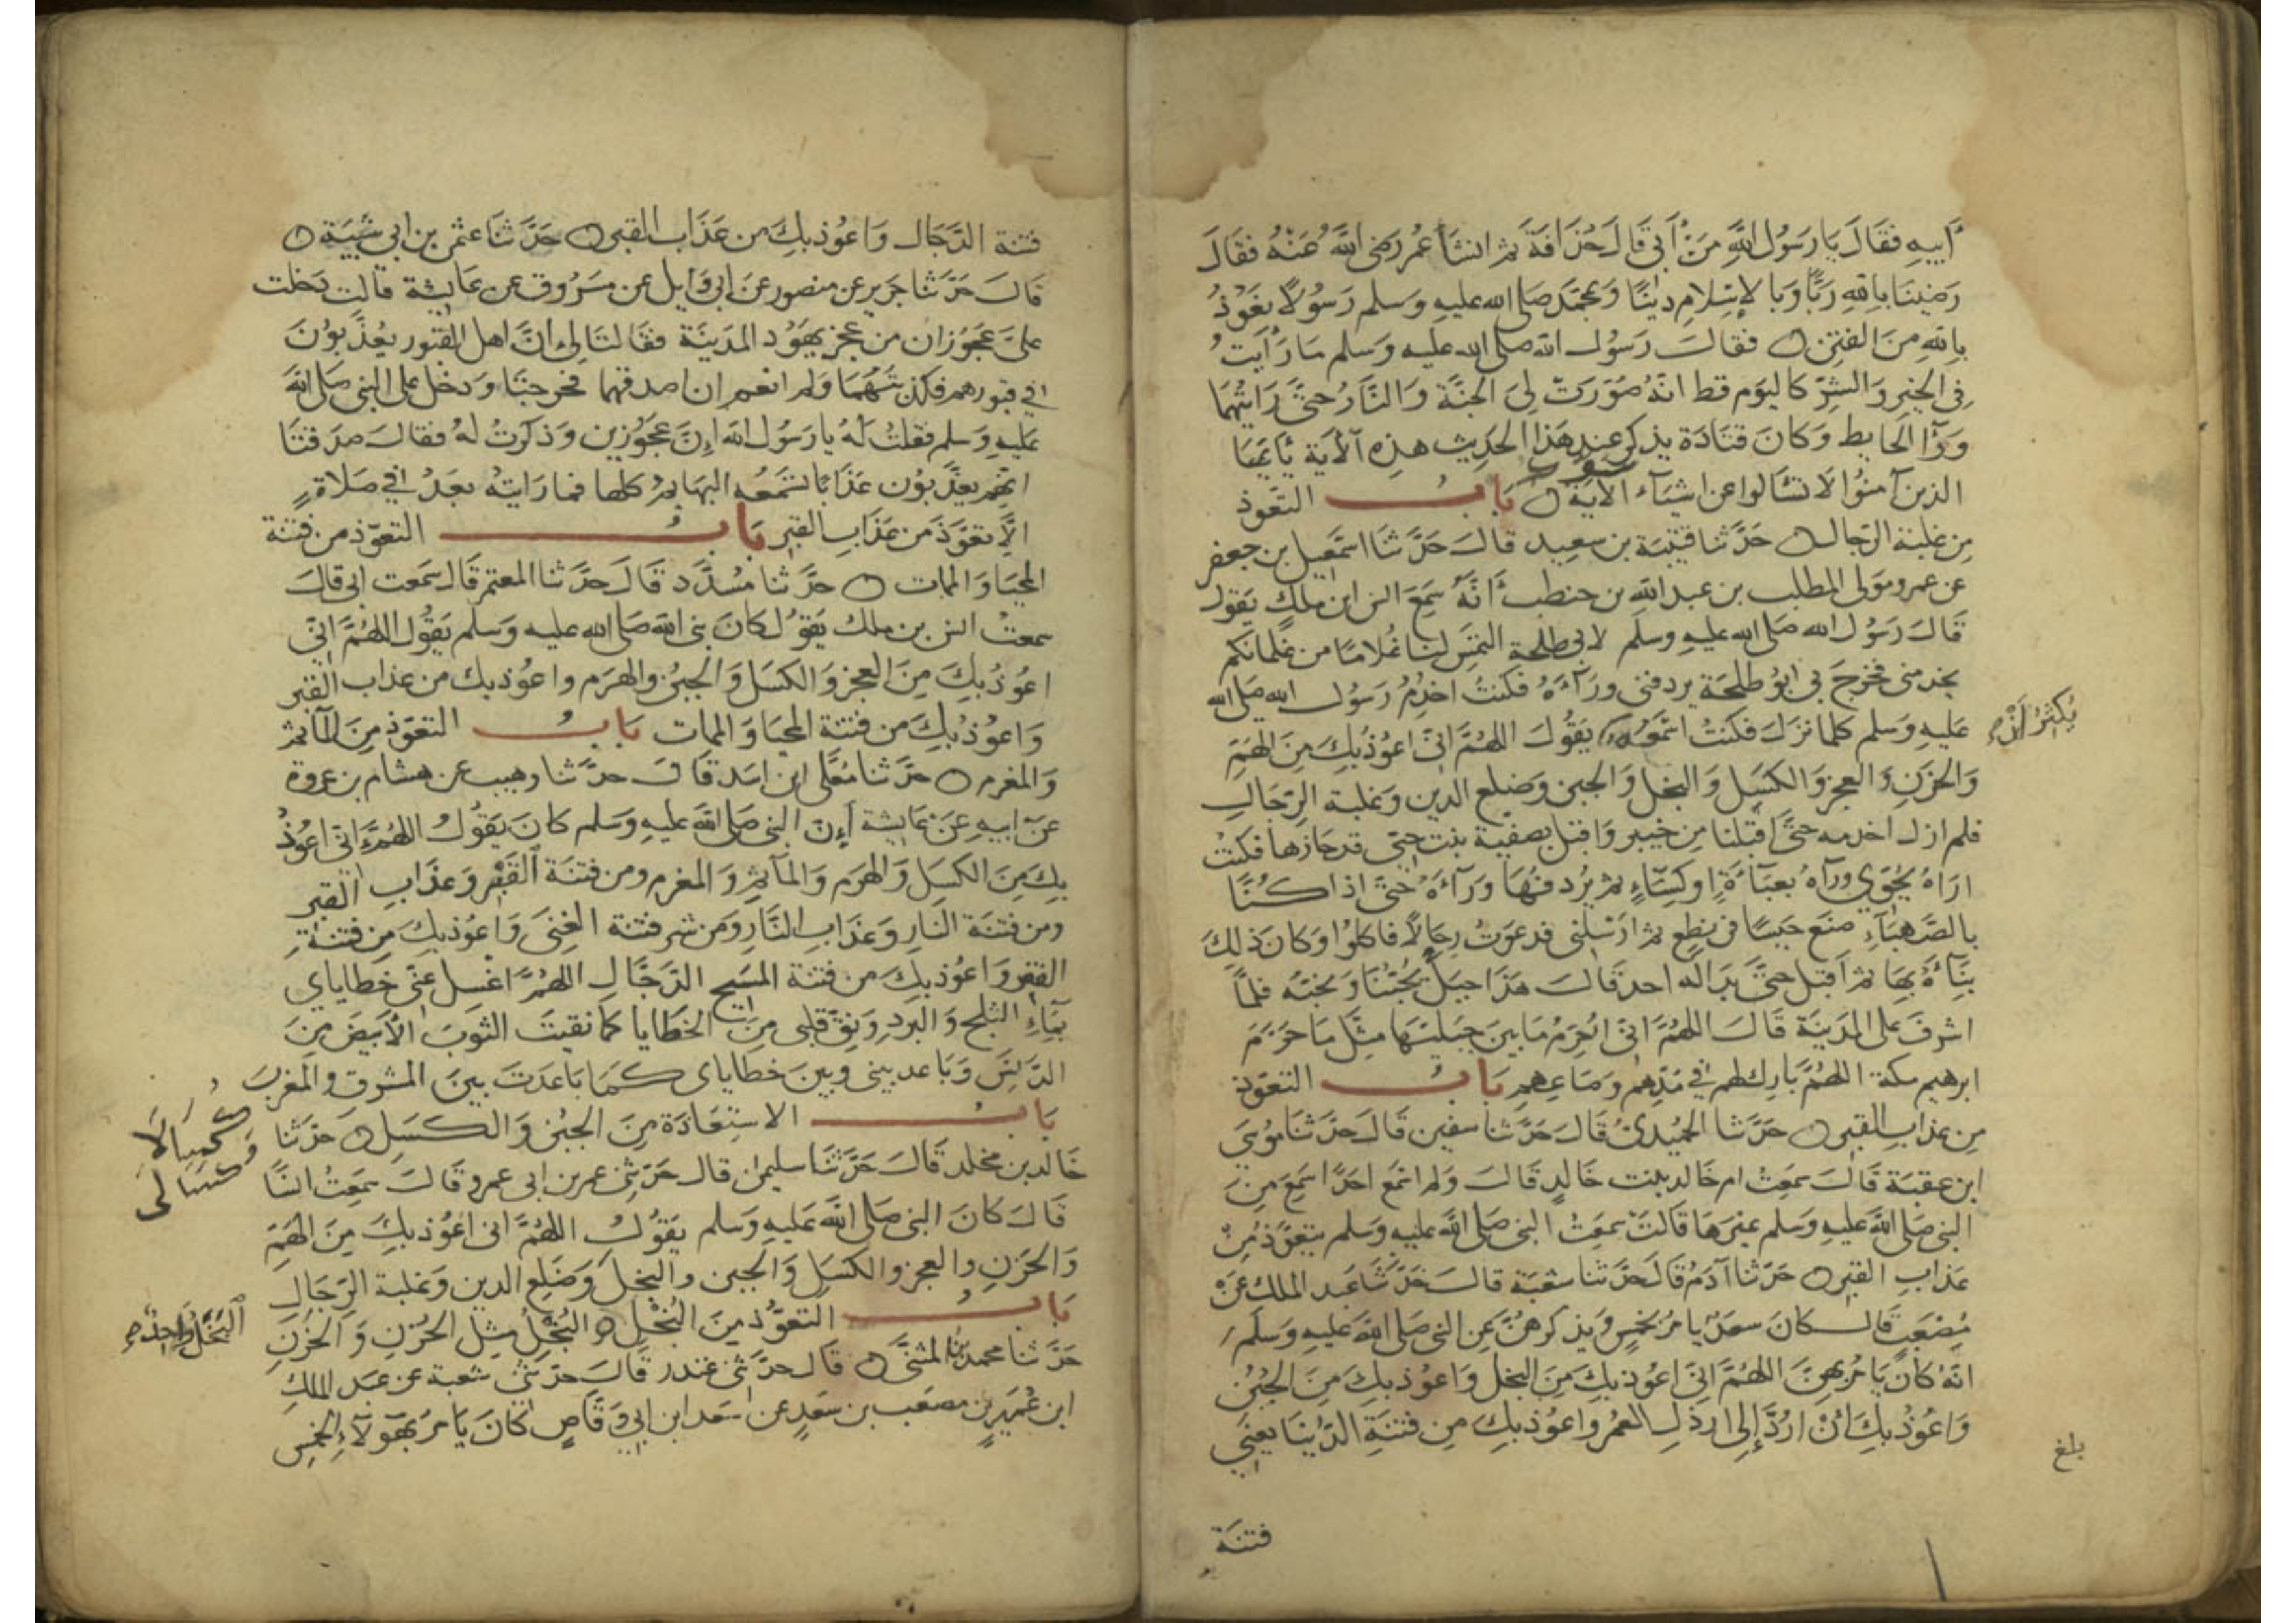 أَبِيهِ فَقَالَ يَا رَسُولَ اللَّهِ مَنْ أَبِي قَالَ حُذَافَةَ ثم انشَأَ عُمر رَضِىَ اللَّهُ عَنْهُ فقَالَ
رَضِينَا بِاللهِ رَبًّا وَبا لإِسْلامِ دِينًا وَبمحمَّد صَلى الله عليهِ وَسلم رَسُولًا نعَوْذُ
بِاللهِ مِنَ الفتَنِ فقالَ رَسُول الله صلى الله عليه وَسلم مَا رَأَيتُ
فِى الخيرِ وَالشرّ كاليَوم قط انهُ صُوّرَتْ لِىَ الجنَّة وَالنَّارُ حتَّى رَايتُهمَا
وَرَآ الحَايط وَكانَ قتَادَة يذكر عند هَذا الحدِيث هذِه الآيَة يَأيُّهَا
الذين آمنُوا لَا تسْألوا عن اشيَآء الآيَة بَابُ التعَوّذ
مِن غلبَة الرّجال حَدَّثنا قتَيبَة بن سعِيد قالَ حَدَّ ثنَا اسمَعِيل بن جعفر
عن عمرو مَولى المطلب بن عبد اللهِ بن حنطب أَنَّهُ سَمِعَ انس ابن مٰلكٍ يَقول
قَالَ رَسُول الله صَلى الله عليهِ وسَلم لابى طلحة التمَس لنَا غلامًا من غلمانكم
يخدمنى فخرجَ بى ابُو طلحَة يردفنى ورَآءَهُ فكنتُ اخدُمُ رَسُول الله صَلى الله
عَليهِ وَسلم كلما نزلَ فكنتُ اسْمَعُه يَقُولَ اللهُمَّ انّى اعوُذُ بِكَ مِنَ الهَمّ
يُكثِرُ أَنْ صح
وَالحَزَنِ وَالعجز وَالكسَل وَالبخل وَالجبن وضلع الدين وَغلبَة الرّجَالِ
فلم ازل اخدمه حتَّى اقبلنا مِن خيبر وَاقبل بصَفيَة بنت حيّى قد حَازها فكنتُ
ارَاهُ يُحَوّى ورآهُ بعبَآءَةٍ اوكِسَآءٍ ثم يُردفهَا وَرَآءَهُ حَتّى اذا كُنَّا
بالصَّهبَآءِ صَنَع حَيسًا فى نطِع ثم ارسَلنى فدعَوتُ رِجَالًا فاكلوُا وَكانَ ذلِكَ
بنَآءهُ بهَا ثم اَقبل حتَّى بَدَا له احد قالَ هَذا جبَل يُحبّنا وَنحبّه فلمَّا
اشرفَ على المدَينَة قَالَ اللهُمَّ انّى احُرّمُ مَا بينَ جَبَليهَا مثل مَا حَرّمَ
ابرهيم مكة اللهُمَّ بَارك لهم فى مُدّهم وَصَاعِهم بَابُ التعَوّذ
مِن عذابِ القبر حَدَّثنا الحمُيدىُّ قَالَ حَدَّثنا سفين قَالَ حَدَّثنا مُوسَى
ابن عقبَة قَالَ سَمعتُ ام خَالد بنت خَالدٍ قَالَ وَلم اسمَع احَدًا سَمِعَ مِنَ
النبى صَلى اللهُ عَليهِ وَسلم غيرَهَا قالَتْ سمعَتُ النبى صَلى اللهُ عليه وَسلم يتعَوَّذ مِنْ
عَذابِ القبر حَدَّثنا آدَمُ قَالَ حَدَّثنا شعبَة قالَ حَدَّثنا عَبد الملك عَنْ
مُصْعَبٍ قَالَ كانَ سعدٌ يا مرُ بخمسٍ وَيذكرهُنَّ عَنِ النبى صَلى اللهُ عَليهِ وَسَلم
انّه كانَ يَا مُر بهِنَّ اللهُمَّ انّى اعوُذ بكَ مِنَ البخل وَاعوُذ بكَ مِنَ الجُبْن
وَاعُوذُ بِكَ اَنْ ارَدَّ إلى ارذلِ العمُر وَاعوُذ بكَ مِن فتنَةِ الدّنيَا يَعْنِى
بلغ
فتنَة
فتنة الدّجَال وَاعوُذ بِكَ من عَذَاب القبر حَدَّ ثنا عثمٰن بن ابى شَيبَة
قالَ حَدَّ ثنا جَرير عن منصور عَن ابى وَايل عن مسَرُوق عن عَايشة قالت دَخلت
علىَّ عجَوُزان من عجز يهَوُد المدينَة فقالتَا لى انَّ اهل القبُور يعُذَّ بوُنَ
فى قبورهم فكذبتهُمَا وَلم انعم ان اصدقهما فخرجتَا وَدخل على النبى صَلى الله
عَليهِ وَسلم فقلتُ لَهُ يا رَسُول الله إِنّ عَجَوُزين وَذكَرتُ لهُ فقالَ صدَقتَا
انهُم يعذَّبوُن عَذابًا تسْمَعُه البهَايمُ كلهَا فما رَايتهُ بعَدُ فى صَلاةٍ
الَّا تعَوّذَ من عذَابِ القبر بَابُ التعوّذ من فتنة
المحيَا وَالممات حدَّ ثنا مُسَدَّد قَالَ حدَّ ثنا المعتمر قَال سَمعت ابى قالَ
سَمعتُ انس بن مٰلك يَقوُل كانَ نبى الله صَلى الله عليه وَسلم يَقُول اللهُمَّ انّى
اعوُذُ بكَ مِنَ العجز وَ الكسَل وَالجبُن وَالهَرَم واعوُذ بك من عذاب القبر
وَاعوُذُ بِكَ من فتنة المحيَا وَالممات بَابُ التعَوّذ مِنَ المآثم
وَالمغرم حدَّ ثنا مُعَلَّى ابن اسَد قالَ حدَّ ثنا وهيب عن هشام بن عروة
عَن ابيهِ عَن عَايشة أنَّ النبى صَلى الله عليهِ وَسلم كانَ يَقُولُ اللهُمَّ انّى اعوُذُ
بِكَ مِنَ الكسَل وَالهَرَم وَالمآثم وَالمغرم ومن فتنَة القَبْر وَعَذابِ القبر
ومن فتنَة النار وَعَذابِ النَّار وَمن شر فتنة الغنَى وَاعوُذ بكَ مِن فتنَةِ
الفقر وَاعوُذ بكَ من فتنة المسَيح الدَّجَّالِ اللهُمَّ اغسِل عَنّى خَطاياى
بمَآءِ الثلج وَالبَرَدِ وَنقّ قلبى مِنَ الخَطايا كما نقيتَ الثوبَ الاَبيَضَ مِنَ
الدَّنَسِ وَبَاعد بينى وبينَ خَطاياى كمَا بَاعَدتَ بينَ المشرق والمغربَ
بَابُ الاستِعَاذَة مِنَ الجبُن وَالكسَلِ حَدّثنا
كُسَالَى وَكَسَالَى
خَالد بن مخلد قَالَ حَدَّثنَا سليمٰن قال حدّثنى عمر بن ابى عمرو قَالَ سَمعتُ انسًا
قَالَ كانَ النبى صَلى الله عَليهِ وَسلم يقوُلُ اللهُمَّ انى اعوُذ بكَ مِنَ الهَمّ
وَالحَزَنِ والعجز والكسَل وَالجبن والبخل وَضَلع الدين وَغلبة الرّجَالِ
بَابُ التعَوُّذ مِنَ البُخْل البُخْلُ مثل الحُزنِ وَ الحَزَنِ
البُخْلُ وَالبَخَلُ وَاحِدٌ صح
حَدَّ ثنا محمد بن المثنىَّ قَال حدَّ ثنى غندر قَالَ حدّثنى شعبة عن عَبد الملِكِ
ابن عُمَيرٍ عن مصعَب بن سَعدٍ عن سَعد ابن ابى وَقّاصٍ كانَ يَا مُر بهَؤلآءِ الخمس